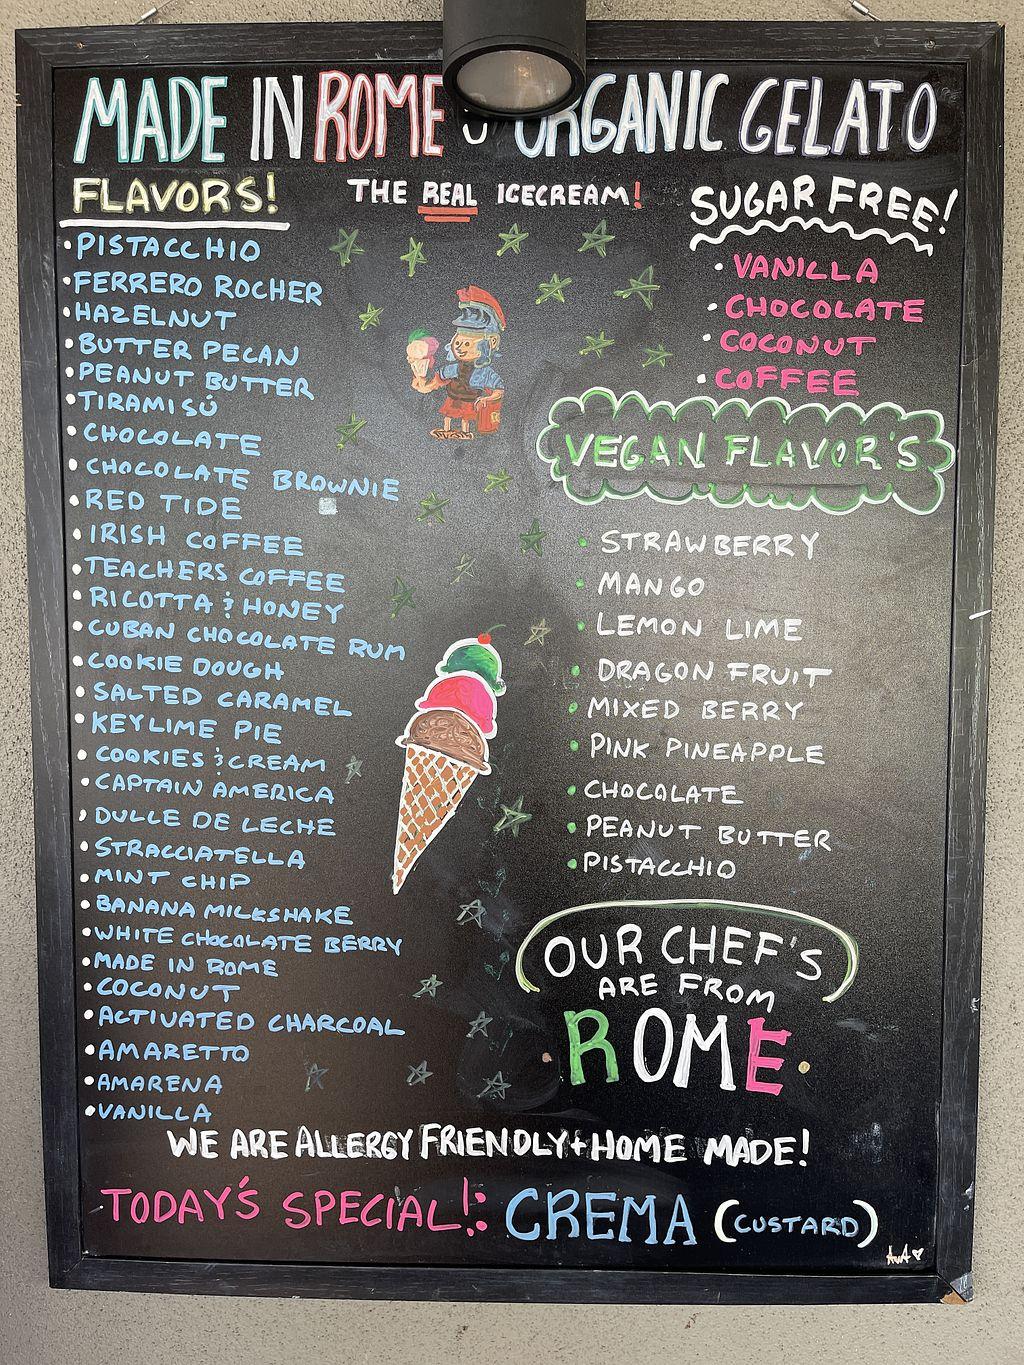 MADE IN ROME ORGANIC GELATO
FLAVORS!
• PISTACCHIO
• FERRERO ROCHER
• HAZELNUT
• BUTTER PECAN
• PEANUT BUTTER
• TIRAMISÚ
• CHOCOLATE
• CHOCOLATE BROWNIE
• RED TIDE
• IRISH COFFEE
• TEACHERS COFFEE
• RICOTTA & HONEY
• CUBAN CHOCOLATE RUM
• COOKIE DOUGH
• SALTED CARAMEL
• KEYLIME PIE
• COOKIES & CREAM
• CAPTAIN AMERICA
• DULLE DE LECHE
• STRACCIATELLA
• MINT CHIP
• BANANA MILKSHAKE
• WHITE CHOCOLATE BERRY
• MADE IN ROME
• COCONUT
• ACTIVATED CHARCOAL
• AMARETTO
• AMARENA
• VANILLA
THE REAL ICECREAM!
SUGAR FREE!
• VANILLA
• CHOCOLATE
• COCONUT
• COFFEE
VEGAN FLAVOR'S
• STRAWBERRY
• MANGO
• LEMON LIME
• DRAGON FRUIT
• MIXED BERRY
• PINK PINEAPPLE
• CHOCOLATE
• PEANUT BUTTER
• PISTACCHIO
OUR CHEF'S
ARE FROM
ROME
WE ARE ALLERGY FRIENDLY + HOME MADE!
TODAY'S SPECIAL!: CREMA (CUSTARD)